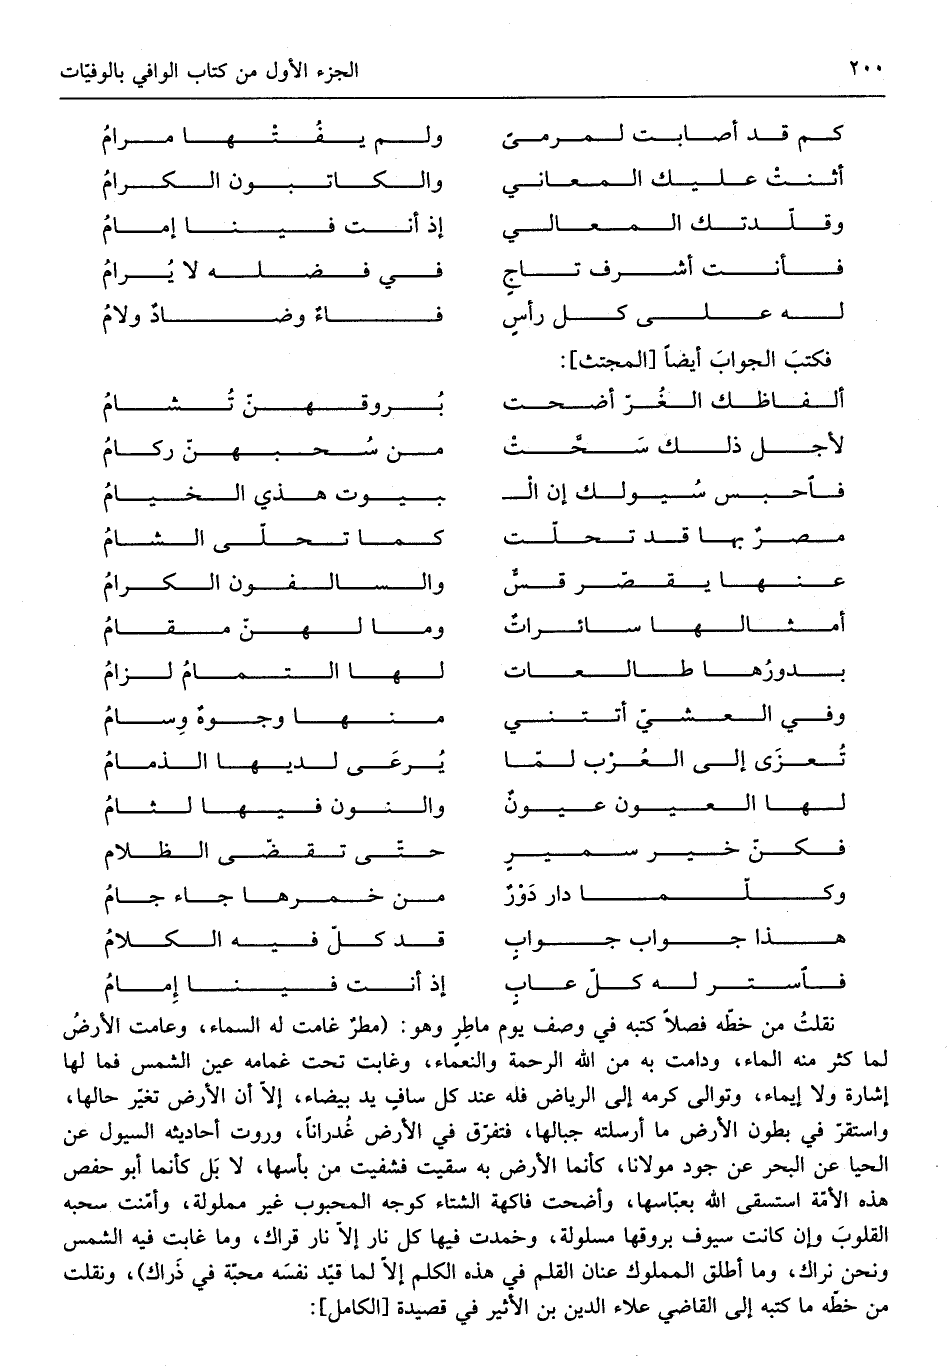 ٢٠٠ الجزء الأول من كتاب الوافي بالوفيّات
كم قد أصابت لمرمىً ولم يفُتْها مرامُ
أثنتْ عليك المعاني والكاتبون الكرامُ
وقلّدتك المعالي إذ أنت فينا إمامُ
فأنت أشرف تاجٍ في فضله لا يُرامُ
له على كل رأسٍ فاءٌ وضادٌ ولامُ
فكتبَ الجوابَ أيضاً [المجتث]:
ألفاظك الغُرّ أضحت بُروقهنّ تُشامُ
لأجل ذلك سَحَّتْ من سُحبهنّ ركامُ
فأحبس سُيولك إن الْـ بيوت هذي الخيامُ
مصرٌ بها قد تحلّت كما تحلّى الشامُ
عنها يقصّر قسٌّ والسالفون الكرامُ
أمثالها سائراتٌ وما لهنّ مقامُ
بدورُها طالعات لها التمامُ لزامُ
وفي العشيّ أتتني منها وجوهٌ وِسامُ
تُعزَى إلى العُرْب لمّا يُرعَى لديها الذمامُ
لها العيون عيونٌ والنون فيها لثامُ
فكنّ خير سميرٍ حتّى تقضّى الظلام
وكلّما دار دَوْرٌ من خمرها جاء جامُ
هذا جواب جوابٍ قد كلّ فيه الكلامُ
فأستر له كلّ عابٍ إذ أنت فينا إمامُ
نقلتُ من خطّه فصلاً كتبه في وصف يوم ماطِرٍ وهو: (مطرٌ غامت له السماء، وعامت الأرضُ
لما كثر منه الماء، ودامت به من الله الرحمة والنعماء، وغابت تحت غمامه عين الشمس فما لها
إشارة ولا إيماء، وتوالى كرمه إلى الرياض فله عند كل سافٍ يد بيضاء، إلاّ أن الأرض تغيّر حالها،
واستقرّ في بطون الأرض ما أرسلته جبالها، فتفرّق في الأرض غُدراناً، وروت أحاديثه السيول عن
الحيا عن البحر عن جود مولانا، كأنما الأرض به سقيت فشفيت من بأسها، لا بَل كأنما أبو حفص
هذه الأمّة استسقى الله بعبّاسها، وأضحت فاكهة الشتاء كوجه المحبوب غير مملولة، وأمّنت سحبه
القلوبَ وإن كانت سيوف بروقها مسلولة، وخمدت فيها كل نار إلاّ نار قراك، وما غابت فيه الشمس
ونحن نراك، وما أطلق المملوك عنان القلم في هذه الكلم إلاّ لما قيّد نفسَه محبّة في ذَراك)، ونقلت
من خطّه ما كتبه إلى القاضي علاء الدين بن الأثير في قصيدة [الكامل]: